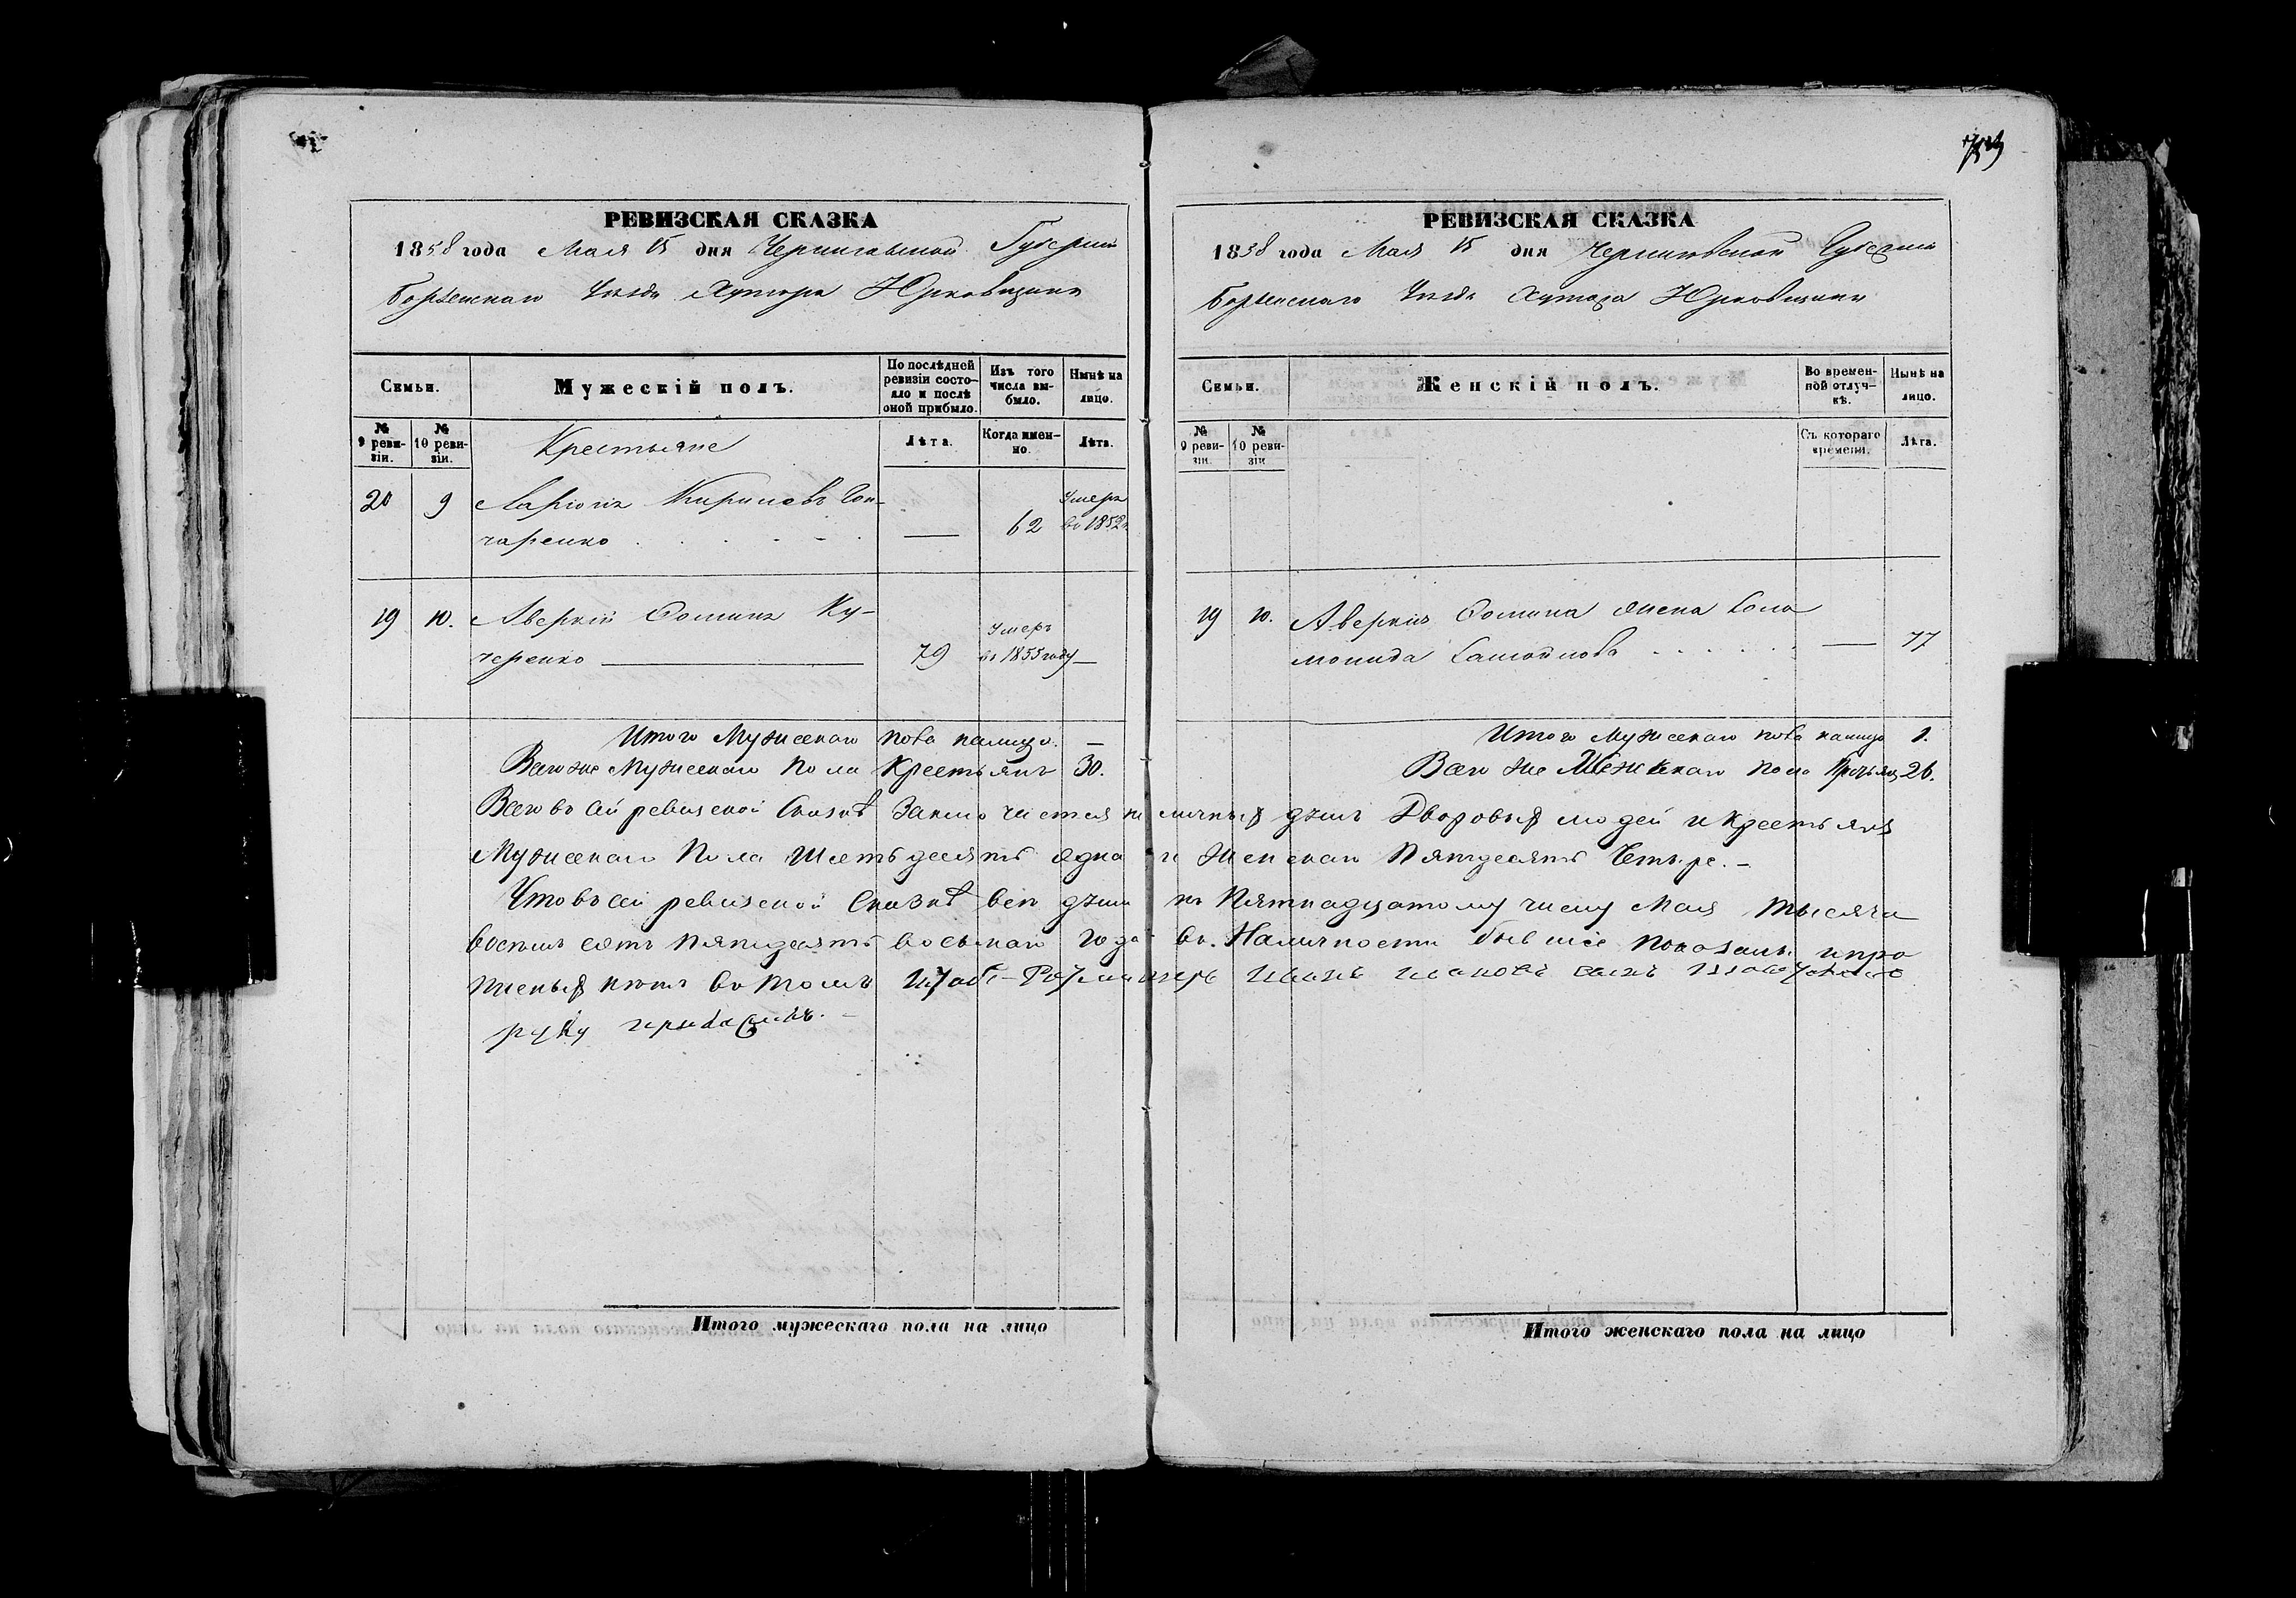 РЕВИЗСКАЯ СКАЗКА
1858 года Мая 15 дня Черниговской Губерніи
Борзенскаго Уезда Хутора Юрковщини
Семьи.
Мужескій полъ.
По послѣдней ревизіи состояло и послѣ оной прибыло.
Изъ того числа выбыло.
Нынѣ на лицо.
№ 9 ревизіи.
№ 10 ревизіи.
Крестьяне
Лѣта.
Когда именно.
Лѣта.
20 9 Ларіонъ Кириловъ Гон-
чаренко — 62 Умеръ въ 1852
19 10. Аверкій Фоминъ Ку-
черенко 79 Умеръ въ 1855 году —
Итого Мужескаго пола налицо. —
Всего же Мужескаго пола Крестьянъ 30.
РЕВИЗСКАЯ СКАЗКА
1858 года Мая 15 дня Черниговской Губерніи
Борзенскаго Уезда Хутора Юрковщини
Семьи.
Женскій полъ.
Во временной отлучкѣ.
Нынѣ на лицо.
№ 9 ревизіи.
№ 10 ревизіи
Съ котораго времени.
Лѣта.
19 10. Аверкія Фомина жена Соло
монида Самойлова — 77
Итого Мужескаго пола налицо 1.
Всего же Женскаго пола 26.
Всего въ сей ревизской Сказкѣ Заключается наличныхъ душъ Дворовыхъ людей и крестьянъ
Мужескаго Пола Шестьдесятъ одна и Женскаго Пятдесятъ Четыре. —
Что въ сей ревизской Сказкѣ все души къ Пятнадцатому числу Мая тысяча
восемь сотъ пятидесятъ восьмаго года въ Наличности бывшіе показаны и про
писныхъ нетъ въ томъ Штабъ-Ротмистръ Иванъ сынъ
руку приложилъ. —
Итого мужескаго пола на лицо
Итого женскаго пола на лицо